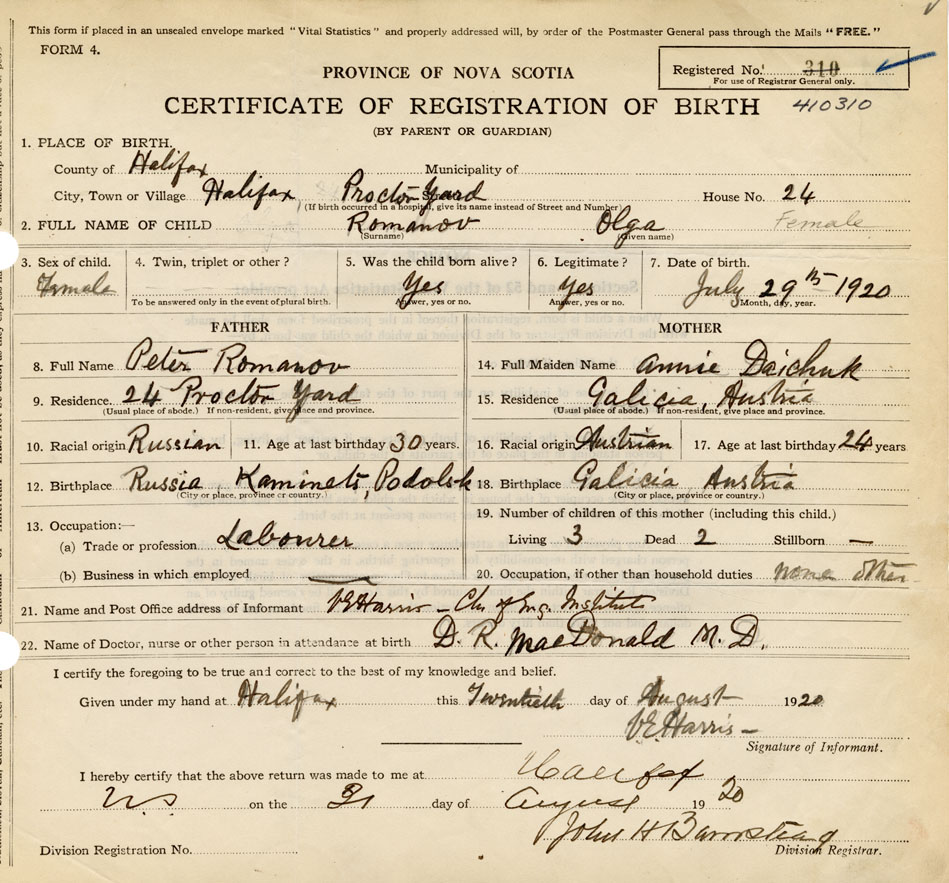 This form if placed in an unsealed envelope marked "Vital Statistics" and properly addressed will, by order of the Postmaster General pass through the Mails "FREE."
FORM 4.
Registered No. 310
For use of Registrar General only.
PROVINCE OF NOVA SCOTIA
CERTIFICATE OF REGISTRATION OF BIRTH 410310
(BY PARENT OR GUARDIAN)
1. PLACE OF BIRTH.
County of Halifax Municipality of
City, Town or Village Halifax Proctor Yard House No. 24
(If birth occurred in a hospital, give its name instead of Street and Number)
2. FULL NAME OF CHILD Romanov Olga Female
(Surname) (Given name)
3. Sex of child. 4. Twin, triplet or other? 5. Was the child born alive? 6. Legitimate? 7. Date of birth.
Female Yes Yes July 29th 1920
To be answered only in the event of plural birth. Answer, yes or no. Answer, yes or no. Month, day, year.
FATHER MOTHER
8. Full Name Peter Romanov 14. Full Maiden Name Annie Daichuk
9. Residence. 24 Proctor Yard 15. Residence Galicia, Austria
(Usual place of abode.) If non-resident, give place and province. (Usual place of abode.) If non-resident, give place and province.
10. Racial origin Russian 11. Age at last birthday 30 years. 16. Racial origin Austrian 17. Age at last birthday 24 years
12. Birthplace Russia, Kaminets, Podolsk 18. Birthplace Galicia Austria
(City or place, province or country.) (City or place, province or country.)
13. Occupation:— 19. Number of children of this mother (including this child.)
(a) Trade or profession Labourer Living 3 Dead 2 Stillborn —
(b) Business in which employed — 20. Occupation, if other than household duties none other
21. Name and Post Office address of Informant VE Harris – Ch of Eng. Institute
22. Name of Doctor, nurse or other person in attendance at birth D. R. MacDonald M. D.
I certify the foregoing to be true and correct to the best of my knowledge and belief.
Given under my hand at Halifax this Twentieth day of August 1920
VE Harris –
Signature of Informant.
I hereby certify that the above return was made to me at Halifax
NS on the 31 day of August 1920
John H Barnstead
Division Registration No. Division Registrar.